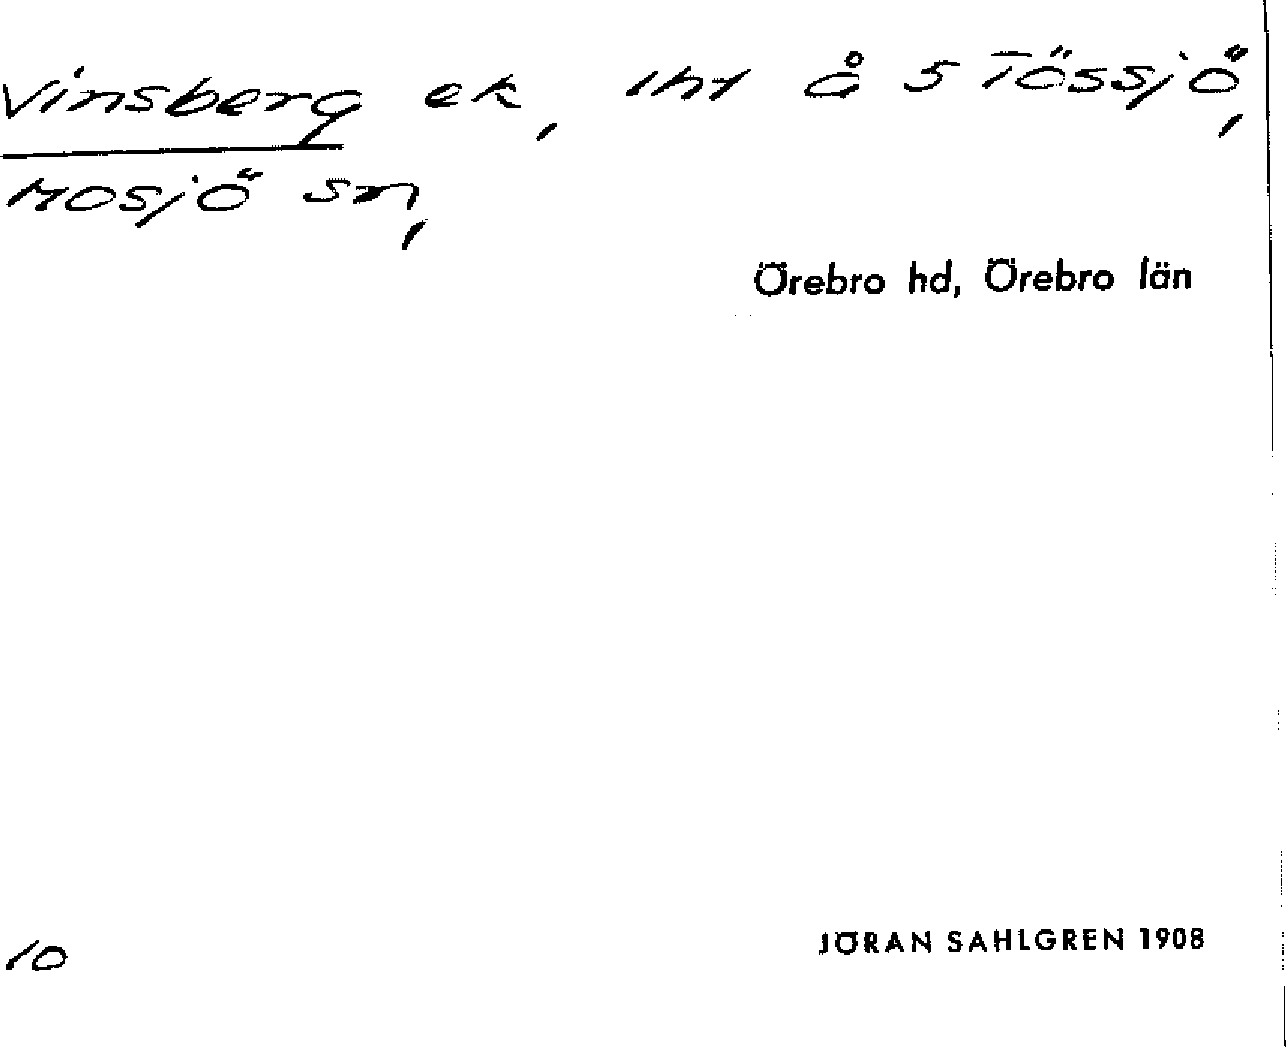 Vinsberg ek, lht å S Tössjö,
Mosjö sn,
Örebro hd, Örebro län
10
JÖRAN SAHLGREN 1908